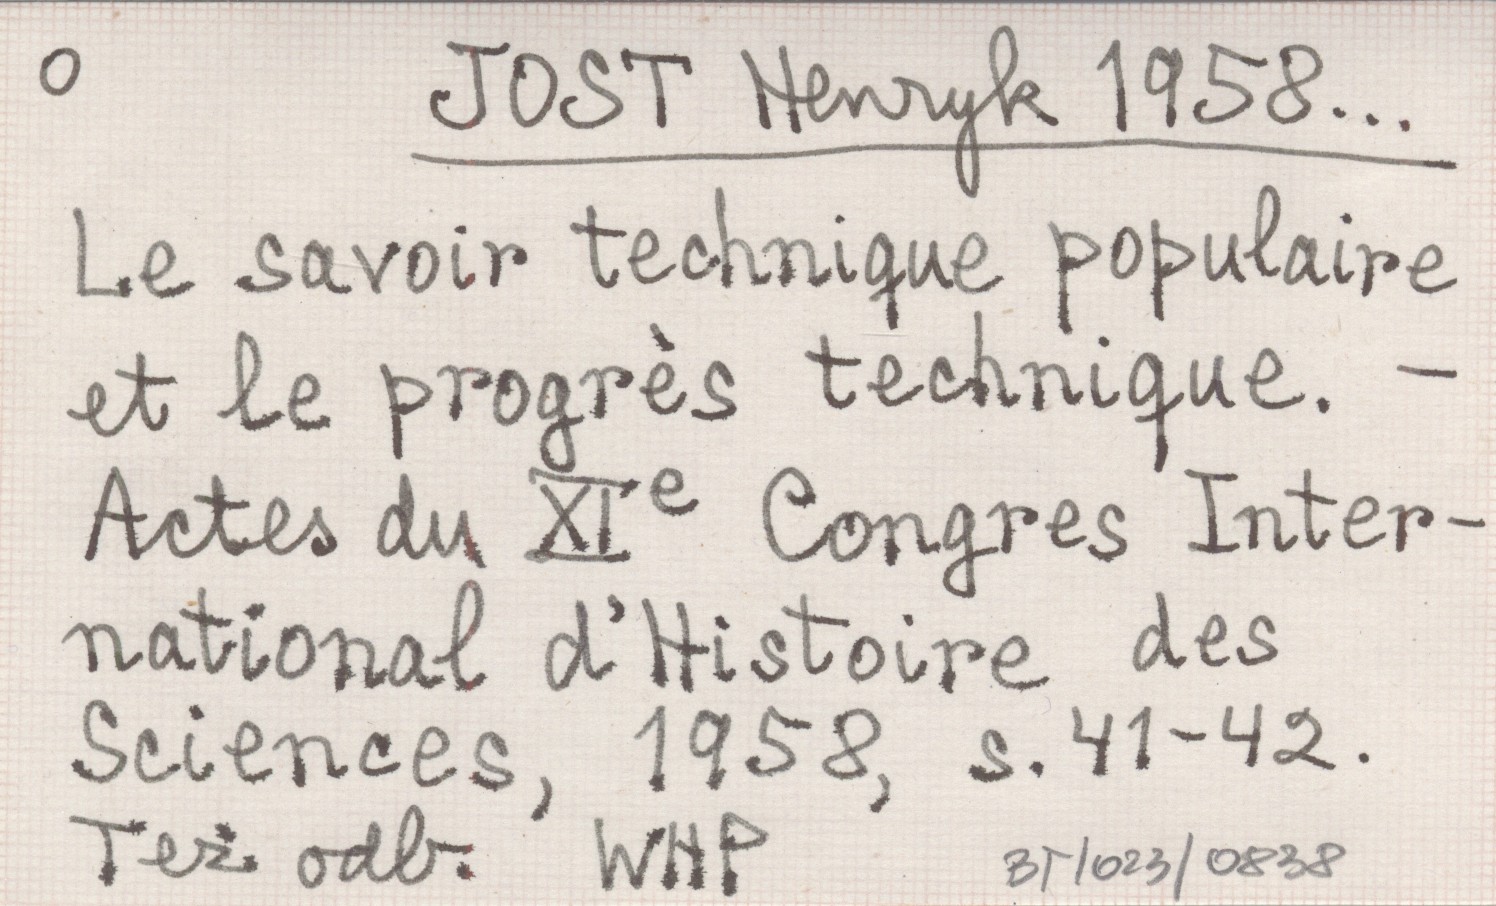 O JOST Henryk 1958...
Le savoir technique populaire
et le progrès technique. –
Actes du XIe Congres Inter-
national d'Histoire des
Sciences, 1958, s. 41-42.
Też odb. WHP BT/023/0838